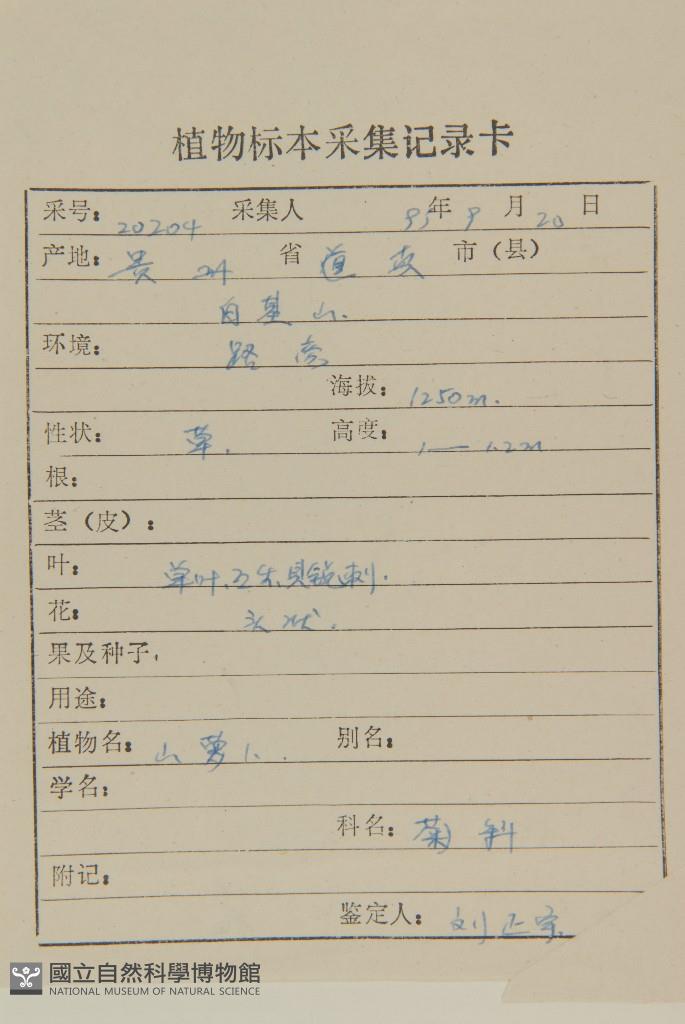 植物标本采集记录卡
采号：20204 采集人 95年9月20日
产地：贵州省道真市（县）
山.
环境：路旁
海拔：1250m.
性状：草. 高度：1—1.2m
根：
茎（皮）：
叶：单叶.互生.具锐刺.
花：头状.
果及种子，
用途：
植物名：山萝卜. 别名：
学名：
科名：菊科
附记：
鉴定人：刘正宇
國立自然科學博物館
NATIONAL MUSEUM OF NATURAL SCIENCE